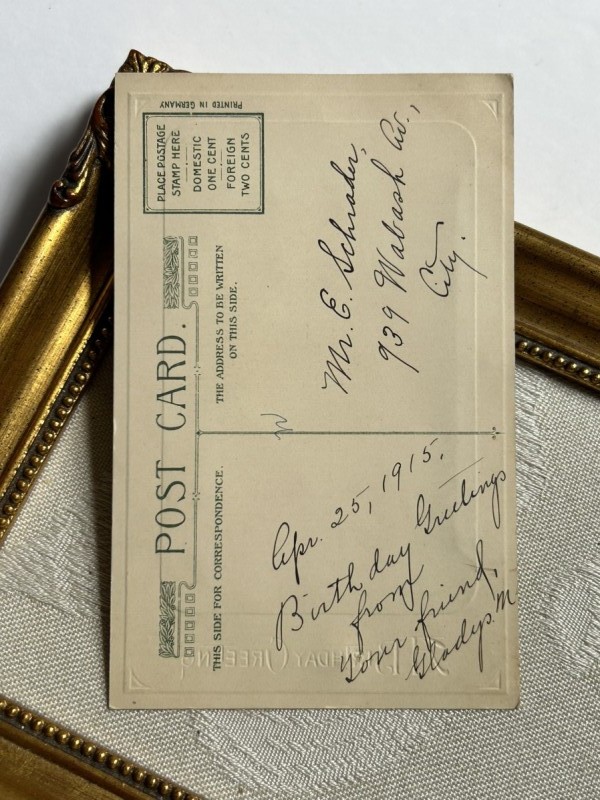 POST CARD.
PRINTED IN GERMANY
PLACE POSTAGE
STAMP HERE
DOMESTIC
ONE CENT
FOREIGN
TWO CENTS
THIS SIDE FOR CORRESPONDENCE.
THE ADDRESS TO BE WRITTEN
ON THIS SIDE.
Apr. 25, 1915.
Birthday Greetings
from
your friend,
Gladys. M
Mr. E. Schrader,
939 Wabash Av.,
City.
BIRTHDAY GREETING